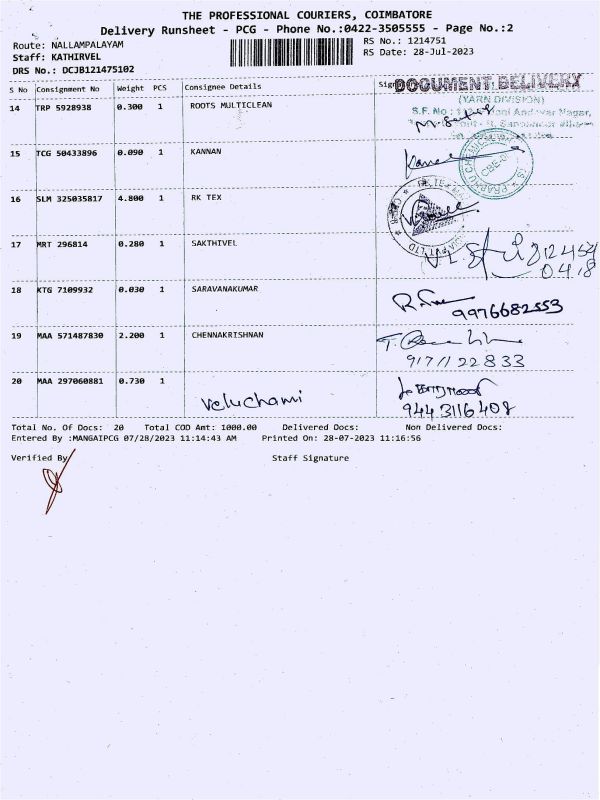 THE PROFESSIONAL COURIERS, COIMBATORE
Delivery Runsheet - PCG - Phone No.:0422-3505555 - Page No.:2
Route: NALLAMPALAYAM
RS No.: 1214751
Staff: KATHIRVEL
RS Date: 28-Jul-2023
DRS No.: DCJB121475102
S No Consignment No Weight PCS Consignee Details
DOCUMENT DELIVERY
(YARN DIVISION)
14 TRP 5928938 0.300 1 ROOTS MULTICLEAN
S.F. No
Nagar,
15 TCG 50433896 0.090 1 KANNAN
16 SLM 325035817 4.800 1 RK TEX
17 MRT 296814 0.280 1 SAKTHIVEL
18 KTG 7109932 0.030 1 SARAVANAKUMAR
9976682553
19 MAA 571487830 2.200 1 CHENNAKRISHNAN
9171122833
20 MAA 297060881 0.730 1
Veluchami
9443116408
Total No. Of Docs: 20 Total COD Amt: 1000.00 Delivered Docs: Non Delivered Docs:
Entered By :MANGAIPCG 07/28/2023 11:14:43 AM Printed On: 28-07-2023 11:16:56
Verified By
Staff Signature